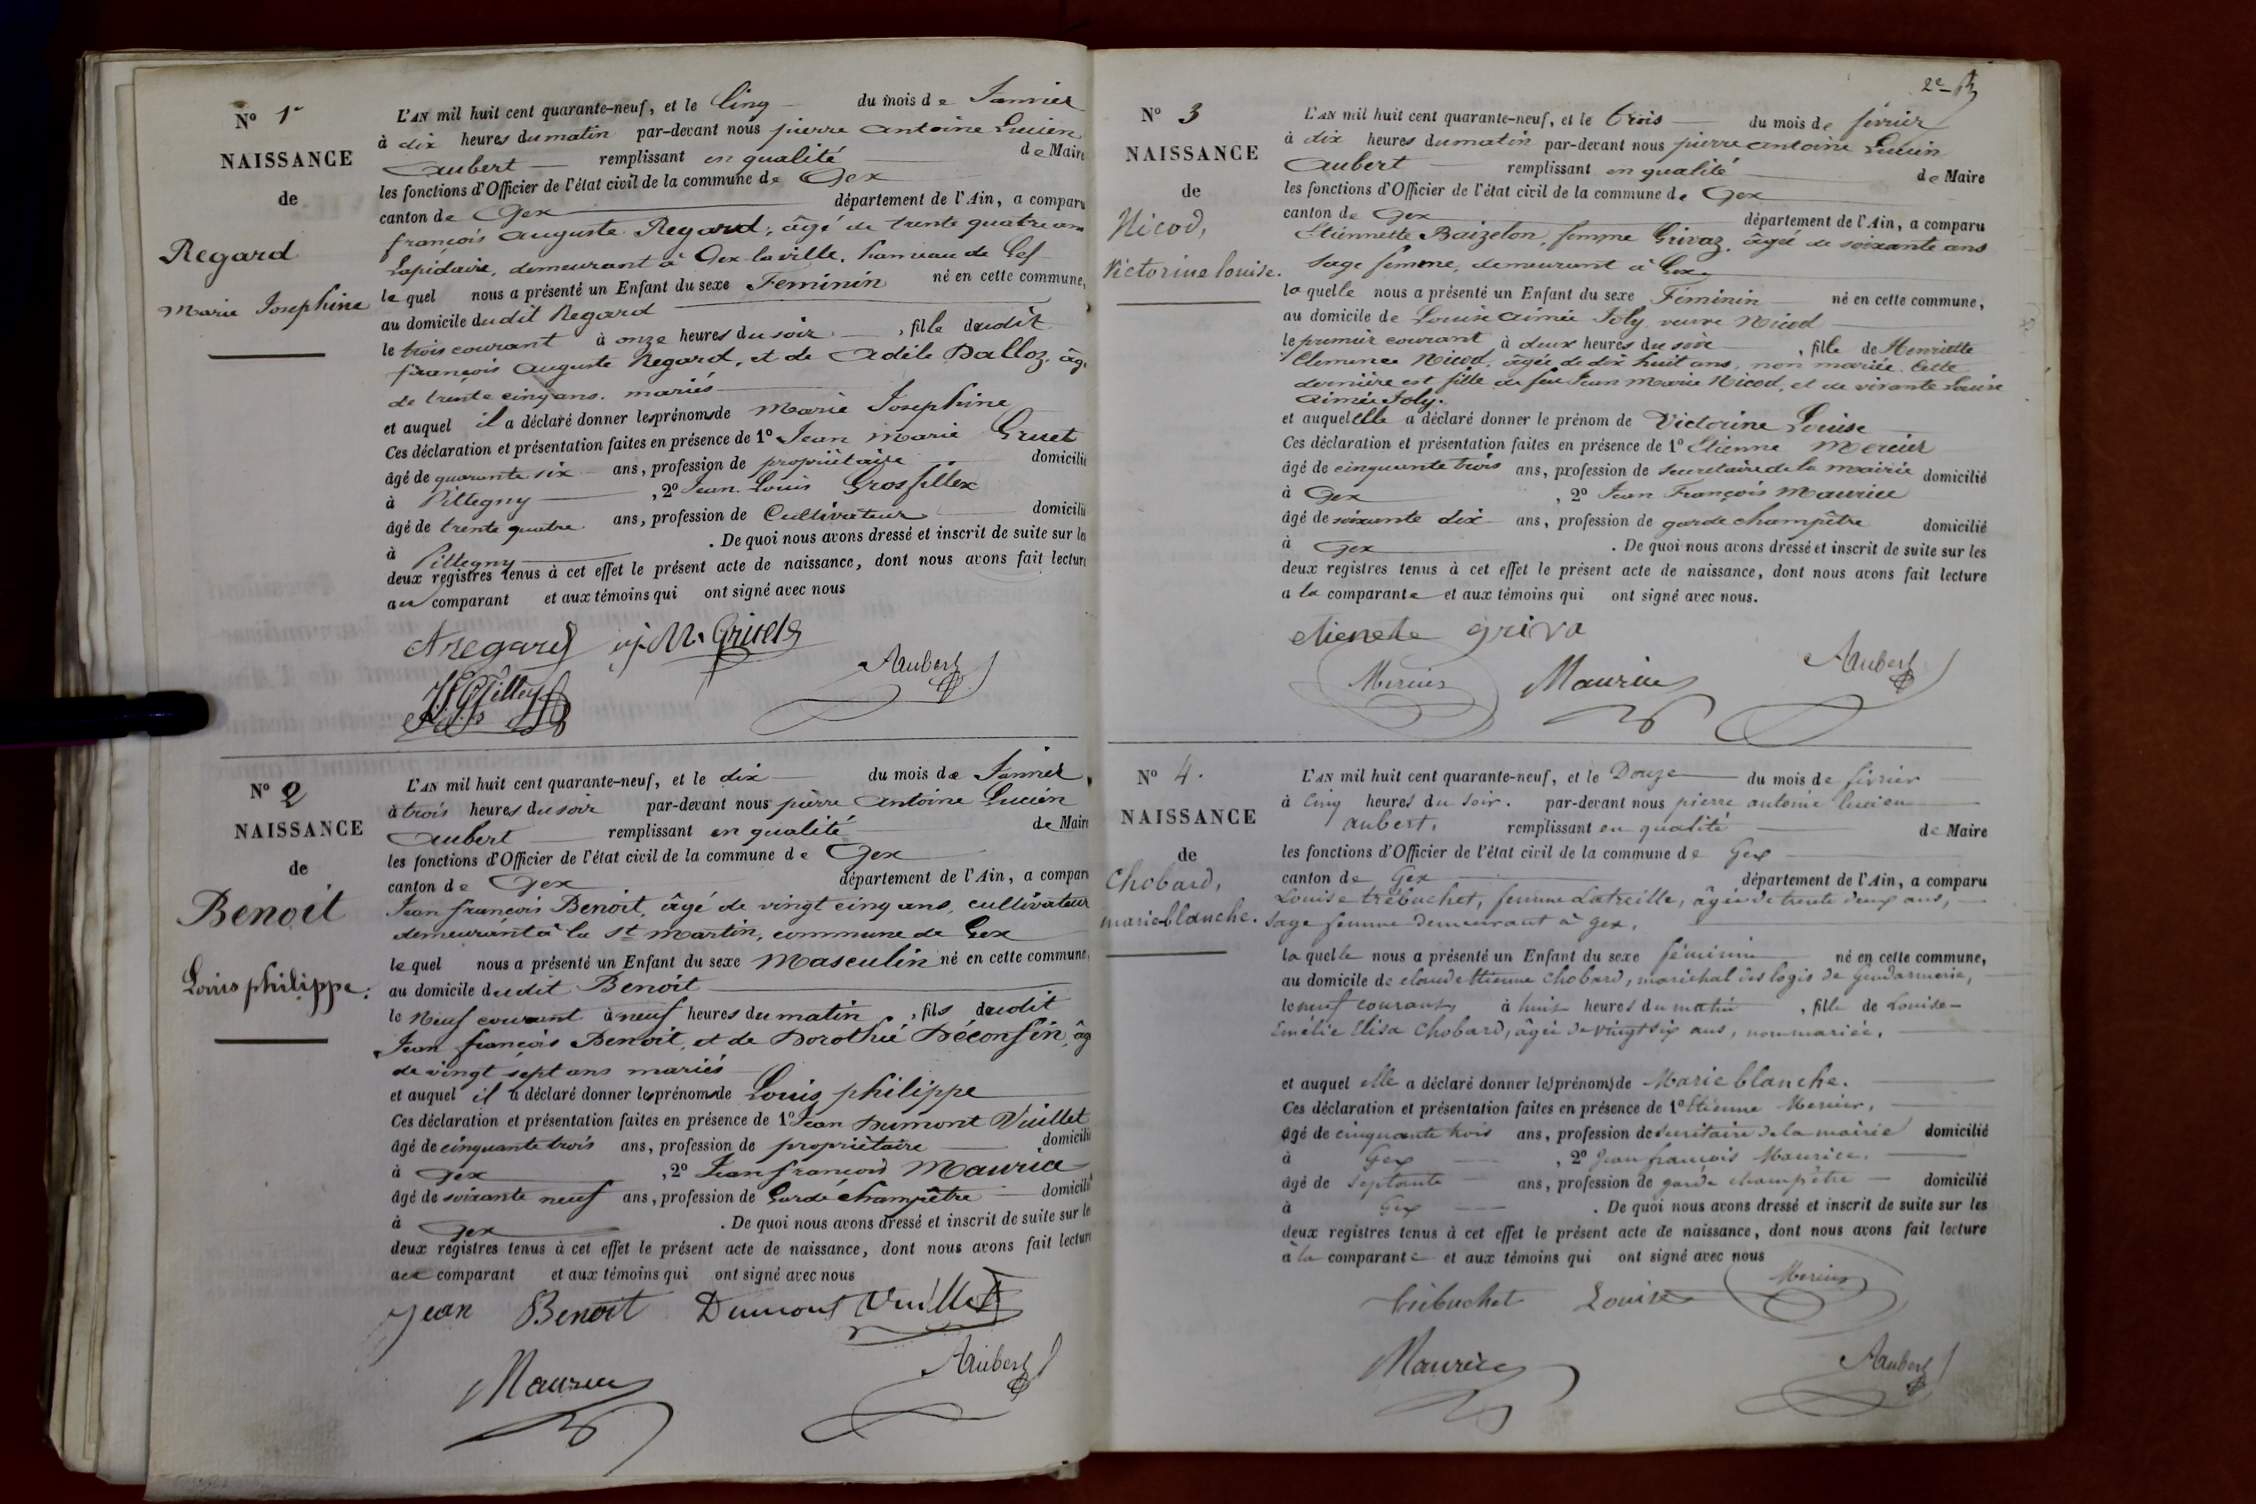 N° 1er
NAISSANCE
de
Regard
Marie Josephine
L'AN mil huit cent quarante-neuf, et le Cinq du mois de Janvier
à dix heures du matin par-devant nous pierre antoine Lucien
Aubert remplissant en qualité de Maire
les fonctions d'Officier de l'état civil de la commune de Gex
canton de Gex département de l'Ain, a comparu
françois Auguste Regard, âgé de trente quatre ans
Lapidaire, demeurant à Gex la ville, hameau de
le quel nous a présenté un Enfant du sexe Feminin né en cette commune,
au domicile dudit Regard
le trois courant à onze heures du soir, fille dudit
françois Auguste Regard, et de Adèle Dalloz, âg.
de trente cinq ans. mariés
et auquel il a déclaré donner les prénoms de Marie Josephine
Ces déclaration et présentation faites en présence de 1° Jean Marie Gruet
âgé de quarante six ans, profession de propriétaire domicilié
à Pittegny, 2° Jean Louis Grosfillex
âgé de trente quatre ans, profession de Cultivateur domicilié
à Pittegny. De quoi nous avons dressé et inscrit de suite sur les
deux registres tenus à cet effet le présent acte de naissance, dont nous avons fait lecture
au comparant et aux témoins qui ont signé avec nous
Aregard
Aubert
N° 2
NAISSANCE
de
Benoit
Louis philippe.
L'AN mil huit cent quarante-neuf, et le dix du mois de Janvier
à trois heures du soir par-devant nous pierre Antoine Lucien
Aubert remplissant en qualité de Maire
les fonctions d'Officier de l'état civil de la commune de Gex
canton de Gex département de l'Ain, a comparu
Jean françois Benoit, âgé de vingt cinq ans, cultivateur
demeurant à la St Martin, commune de Gex
le quel nous a présenté un Enfant du sexe Masculin né en cette commune,
au domicile dudit Benoit
le Neuf courant à neuf heures du matin, fils dudit
Jean françois Benoit, et de Dorothée Déconfin, âg
de vingt sept ans mariés
et auquel il a déclaré donner les prénoms de Louis philippe
Ces déclaration et présentation faites en présence de 1° Jean Dumont Vuillet
âgé de cinquante trois ans, profession de propriétaire domicilié
à Gex, 2° Jean françois Maurice
âgé de soixante neuf ans, profession de Garde champêtre domicilié
à Gex. De quoi nous avons dressé et inscrit de suite sur les
deux registres tenus à cet effet le présent acte de naissance, dont nous avons fait lecture
au comparant et aux témoins qui ont signé avec nous
Jean Benoit Dumont Vuillet
Maurice Aubert
2e
N° 3
NAISSANCE
de
Nicod,
Victorine louise.
L'AN mil huit cent quarante-neuf, et le trois du mois de février
à dix heures du matin par-devant nous pierre antoine Lucien
Aubert remplissant en qualité de Maire
les fonctions d'Officier de l'état civil de la commune de Gex
canton de Gex département de l'Ain, a comparu
Etiennette Baizeton, femme Grivaz, âgée de soixante ans
Sage femme, demeurant à Gex
la quelle nous a présenté un Enfant du sexe Féminin né en cette commune,
au domicile de Louise Aimée Joly veuve Nicod
le premier courant à deux heures du soir, fille de Henriette
Clemence Nicod, âgée de dix huit ans, non mariée. Cette
dernière est fille de feu Jean Marie Nicod, et de vivante Louise
Aimée Joly.
et auquel elle a déclaré donner le prénom de Victorine Louise
Ces déclaration et présentation faites en présence de 1° Etienne Mercier
âgé de cinquante trois ans, profession de secretaire de la mairie domicilié
à Gex, 2° Jean François Maurice
âgé de soixante dix ans, profession de garde champêtre domicilié
à Gex. De quoi nous avons dressé et inscrit de suite sur les
deux registres tenus à cet effet le présent acte de naissance, dont nous avons fait lecture
a la comparante et aux témoins qui ont signé avec nous.
etienete griva
Mercier Maurice Aubert
N° 4.
NAISSANCE
de
Chobard,
marie blanche.
L'AN mil huit cent quarante-neuf, et le Douze du mois de février
à cinq heures du soir. par-devant nous pierre antoine lucien
aubert, remplissant en qualité de Maire
les fonctions d'Officier de l'état civil de la commune de Gex
canton de Gex département de l'Ain, a comparu
Louise trébuchet, femme Latreille, âgée de trente deux ans,
Sage femme demeurant à Gex,
la quelle nous a présenté un Enfant du sexe féminin né en cette commune,
au domicile de claude Etienne Chobard, maréchal des logis de Gendarmerie,
le neuf courant, à huit heures du matin, fille de Louise-
Emélie Elisa Chobard, âgée de vingt six ans, non mariée,
et auquel elle a déclaré donner les prénoms de Marie blanche.
Ces déclaration et présentation faites en présence de 1° Etienne Mercier,
âgé de cinquante trois ans, profession de secrétaire de la mairie domicilié
à Gex, 2° Jean françois Maurice,
âgé de Septante ans, profession de garde champêtre domicilié
à Gex. De quoi nous avons dressé et inscrit de suite sur les
deux registres tenus à cet effet le présent acte de naissance, dont nous avons fait lecture
à la comparante et aux témoins qui ont signé avec nous
trébuchet Louise Mercier
Maurice Aubert